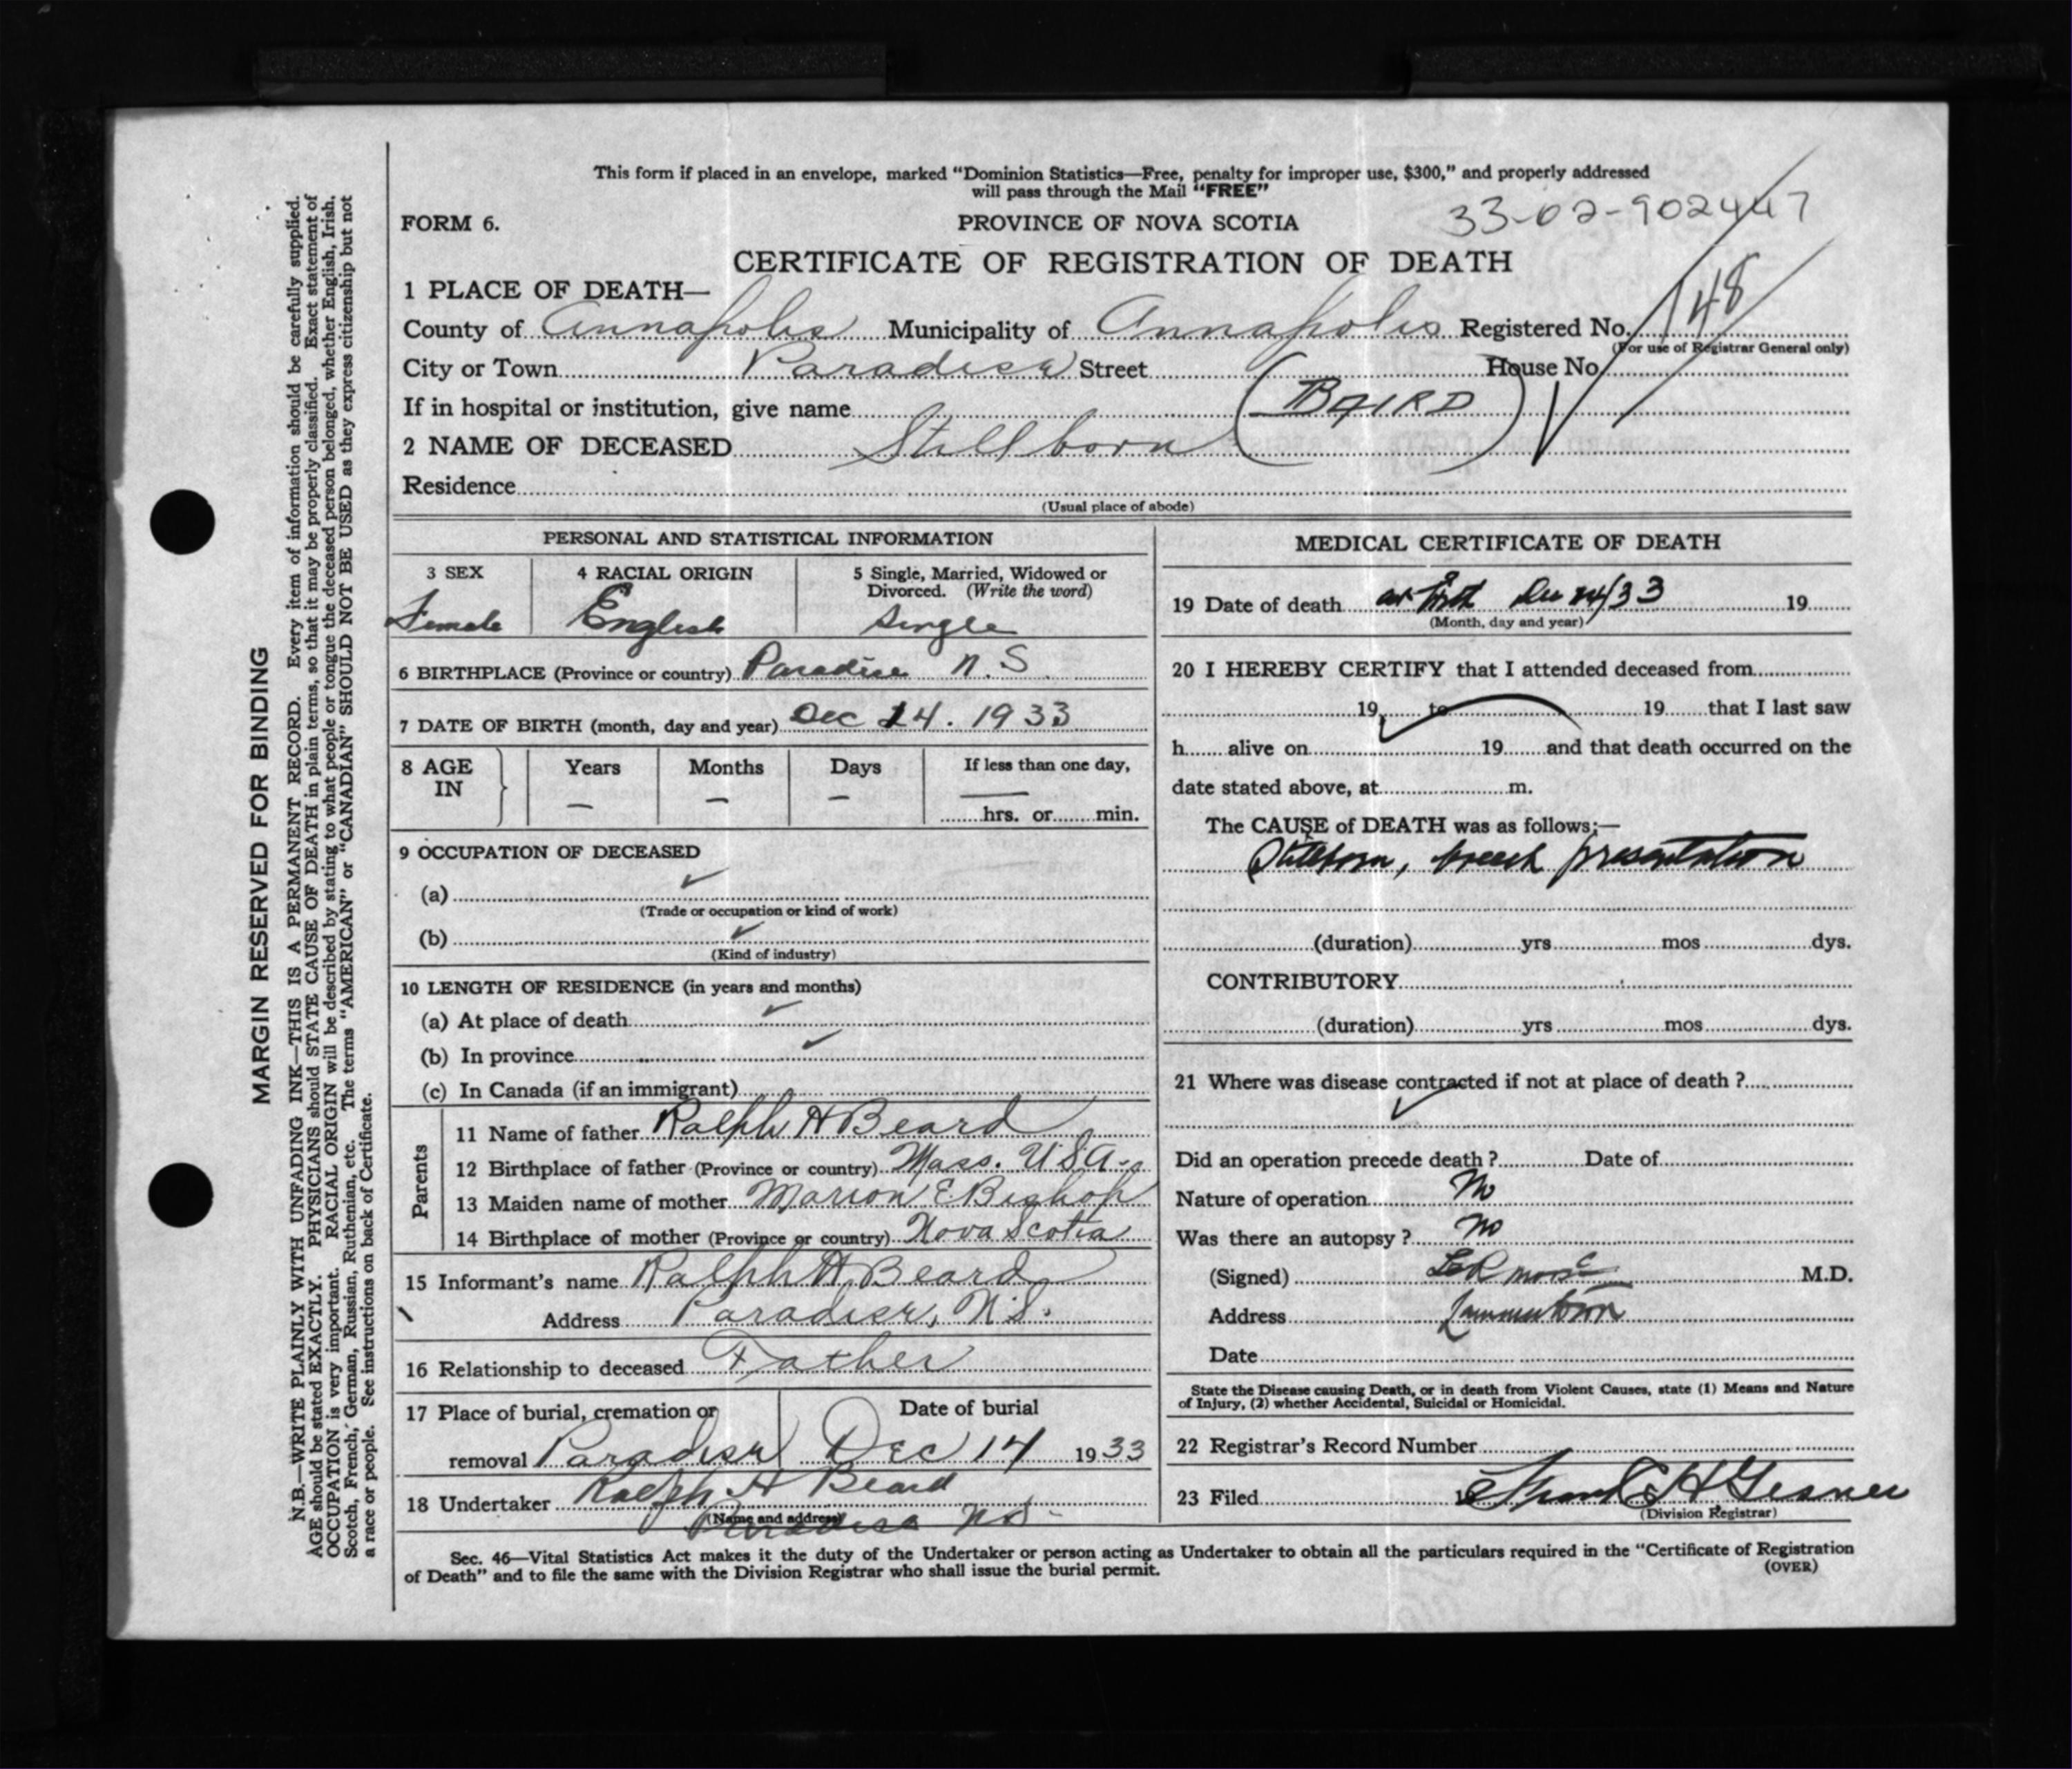 This form if placed in an envelope, marked “Dominion Statistics—Free, penalty for improper use, $300,” and properly addressed
will pass through the Mail “FREE”
33-02-902447
FORM 6. PROVINCE OF NOVA SCOTIA
CERTIFICATE OF REGISTRATION OF DEATH
1 PLACE OF DEATH—
County of Annapolis Municipality of Annapolis Registered No. 148
(For use of Registrar General only)
City or Town Paradise Street House No.
If in hospital or institution, give name (BAIRD)
2 NAME OF DECEASED Stillborn
Residence
(Usual place of abode)
PERSONAL AND STATISTICAL INFORMATION
3 SEX 4 RACIAL ORIGIN 5 Single, Married, Widowed or
Divorced. (Write the word)
Female English Single
6 BIRTHPLACE (Province or country) Paradise N.S
7 DATE OF BIRTH (month, day and year) Dec 14. 1933
8 AGE IN Years Months Days If less than one day,
— — — —
hrs. or min.
9 OCCUPATION OF DECEASED
(a)
(Trade or occupation or kind of work)
(b)
(Kind of industry)
10 LENGTH OF RESIDENCE (in years and months)
(a) At place of death
(b) In province
(c) In Canada (if an immigrant)
Parents
11 Name of father Ralph H Beard
12 Birthplace of father (Province or country) Mass. USA
13 Maiden name of mother Marion E Bishop
14 Birthplace of mother (Province or country) Nova Scotia
15 Informant's name Ralph H Beard
Address Paradise, N.S.
16 Relationship to deceased Father
17 Place of burial, cremation or Date of burial
removal Paradise Dec 14 1933
18 Undertaker Ralph H Beard
(Name and address)
Paradise NS
MEDICAL CERTIFICATE OF DEATH
19 Date of death at birth Dec 14/33 19
(Month, day and year)
20 I HEREBY CERTIFY that I attended deceased from
19 to 19 that I last saw
h alive on 19 and that death occurred on the
date stated above, at m.
The CAUSE of DEATH was as follows:—
Stillborn, breech presentation
(duration) yrs mos dys.
CONTRIBUTORY
(duration) yrs mos dys.
21 Where was disease contracted if not at place of death ?
Did an operation precede death ? Date of
Nature of operation No
Was there an autopsy ? No
(Signed) L R Morse M.D.
Address Lawrencetown
Date
State the Disease causing Death, or in death from Violent Causes, state (1) Means and Nature
of Injury, (2) whether Accidental, Suicidal or Homicidal.
22 Registrar's Record Number
23 Filed 19 Frank H Gesner
(Division Registrar)
Sec. 46—Vital Statistics Act makes it the duty of the Undertaker or person acting as Undertaker to obtain all the particulars required in the “Certificate of Registration
of Death” and to file the same with the Division Registrar who shall issue the burial permit.
(OVER)
MARGIN RESERVED FOR BINDING
N.B.—WRITE PLAINLY WITH UNFADING INK—THIS IS A PERMANENT RECORD. Every item of information should be carefully supplied.
AGE should be stated EXACTLY. PHYSICIANS should STATE CAUSE OF DEATH in plain terms, so that it may be properly classified. Exact statement of
OCCUPATION is very important. RACIAL ORIGIN will be described by stating to what people or tongue the deceased person belonged, whether English, Irish,
Scotch, French, German, Russian, Ruthenian, etc. The terms “AMERICAN” or “CANADIAN” SHOULD NOT BE USED as they express citizenship but not
a race or people. See instructions on back of Certificate.